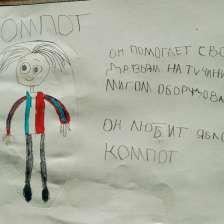 КОМПОТ
ОН ПОМОГАЕТ СВО
ДРУЗЬЯМ НА
МИГОМ ОБОРУДОВА
ОН ЛЮБИТ ЯБЛО
КОМПОТ